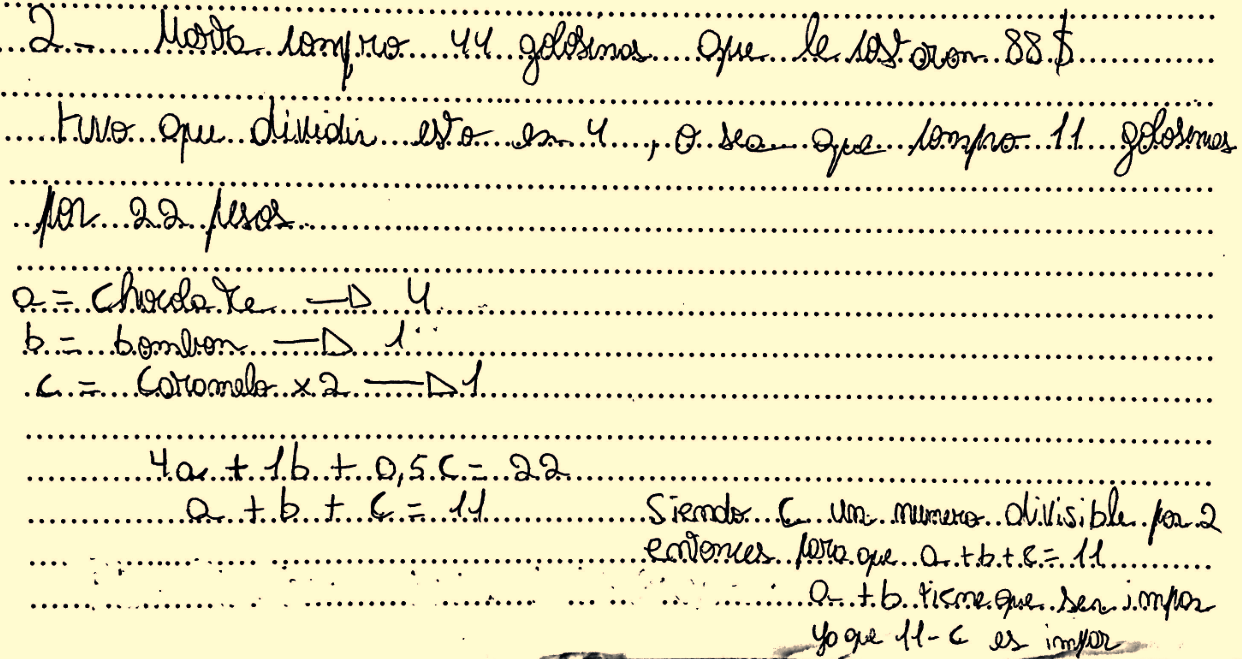 2- María compro 44 golosinas que le costaron 88 $
tuvo que dividir esto en 4, o sea que compro 11 golosinas
por 22 pesos
a = chocolate → 4
b = bombon → 1
c = Caramelo x2 → 1
4a + 1b + 0,5 c = 22
a + b + c = 11
Siendo c un numero divisible por 2
entonces para que a + b + c = 11
a + b tiene que ser impar
ya que 11 - c es impar